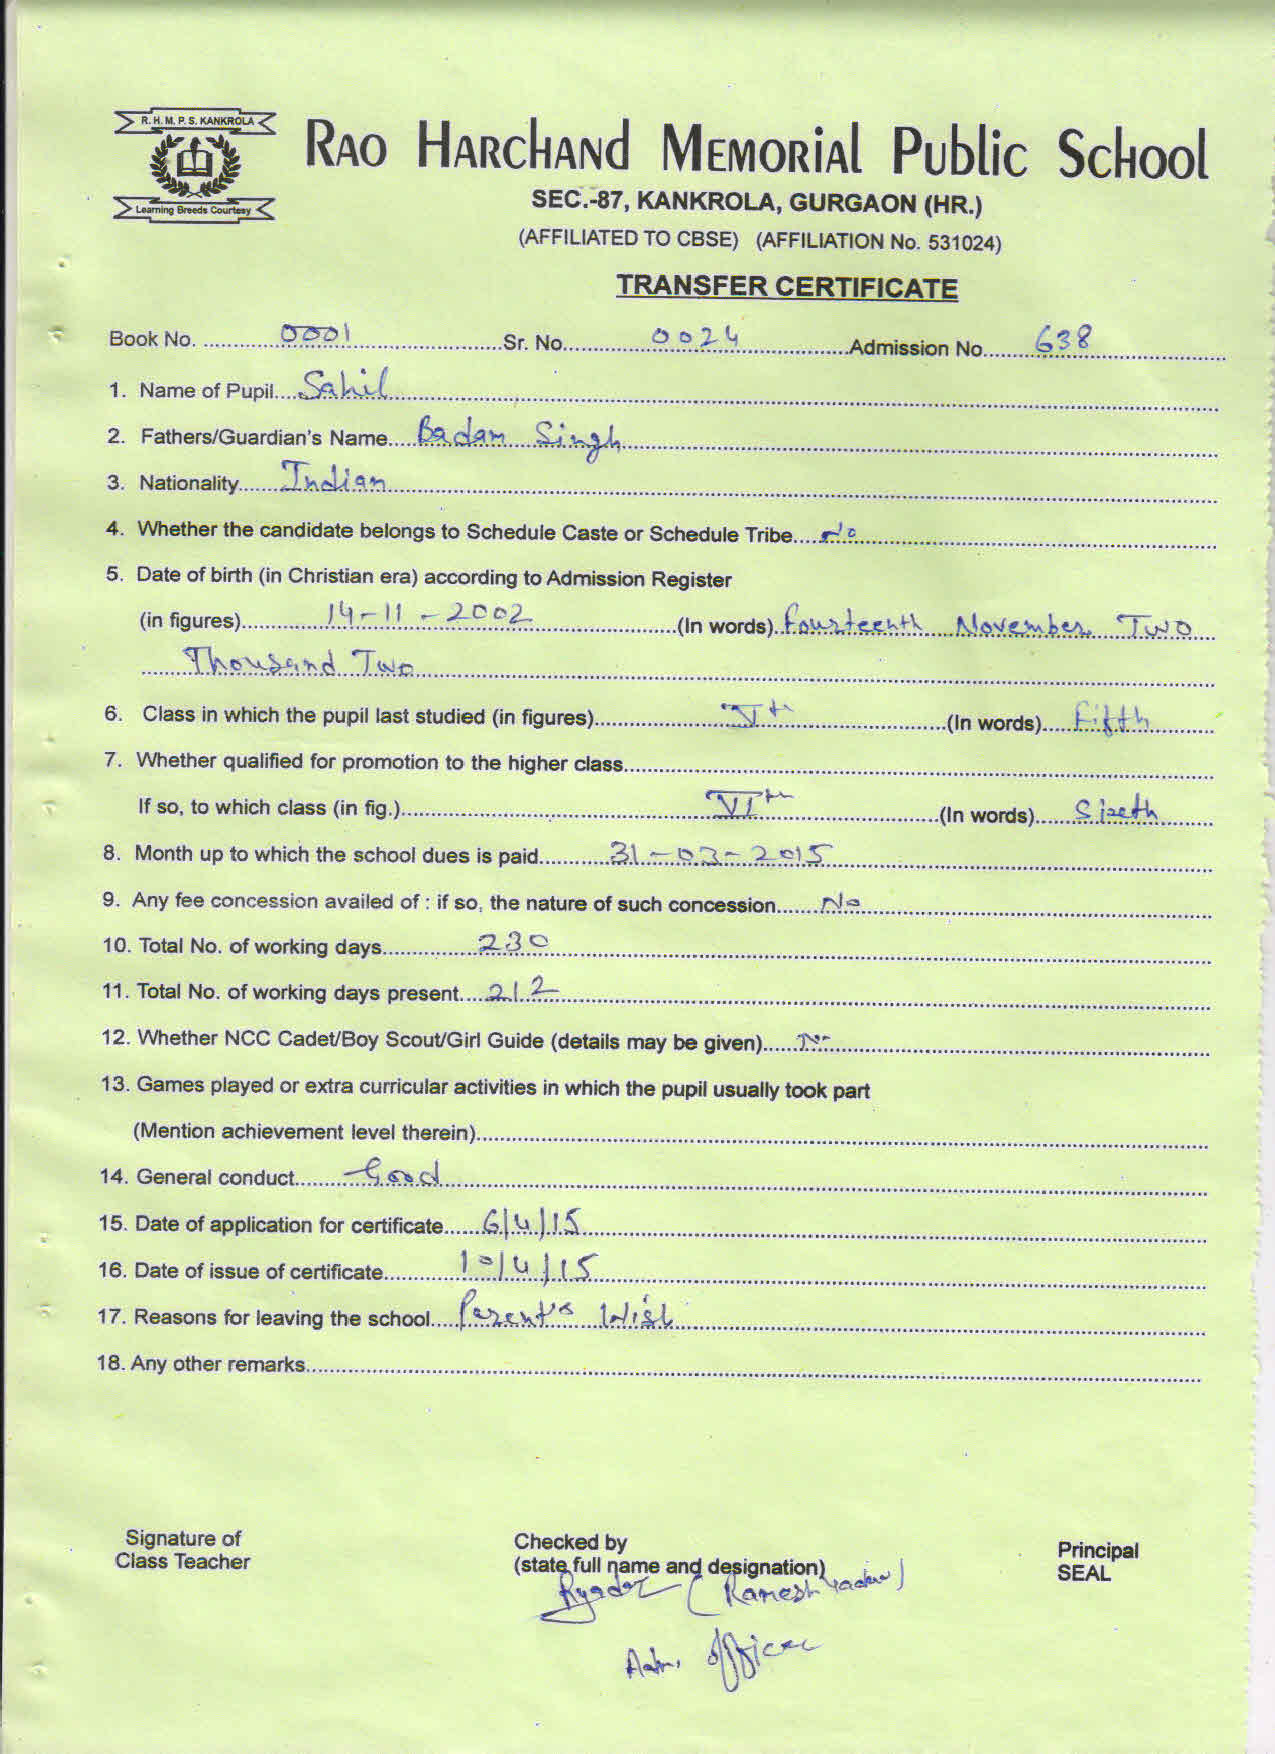 R. H. M. P. S. KANKROLA
Learning Breeds Courtesy
RAO HARCHAND MEMORIAL PUBLIC SCHOOL
SEC.-87, KANKROLA, GURGAON (HR.)
(AFFILIATED TO CBSE) (AFFILIATION No. 531024)
TRANSFER CERTIFICATE
Book No. 0001 Sr. No. 0024 Admission No. 638
1. Name of Pupil Sahil
2. Fathers/Guardian's Name Badam Singh
3. Nationality Indian
4. Whether the candidate belongs to Schedule Caste or Schedule Tribe No
5. Date of birth (in Christian era) according to Admission Register
(in figures) 14-11-2002 (In words) Fourteenth November Two
Thousand Two
6. Class in which the pupil last studied (in figures) Vth (In words) Fifth
7. Whether qualified for promotion to the higher class
If so, to which class (in fig.) VIth (In words) Sixth
8. Month up to which the school dues is paid 31-03-2015
9. Any fee concession availed of : if so, the nature of such concession No
10. Total No. of working days 230
11. Total No. of working days present 212
12. Whether NCC Cadet/Boy Scout/Girl Guide (details may be given) No
13. Games played or extra curricular activities in which the pupil usually took part
(Mention achievement level therein)
14. General conduct Good
15. Date of application for certificate 6/4/15
16. Date of issue of certificate 10/4/15
17. Reasons for leaving the school Parent's Wish
18. Any other remarks
Signature of
Class Teacher
Checked by
(state full name and designation)
Ryadav (Ramesh Yadav)
Adm. Officer
Principal
SEAL